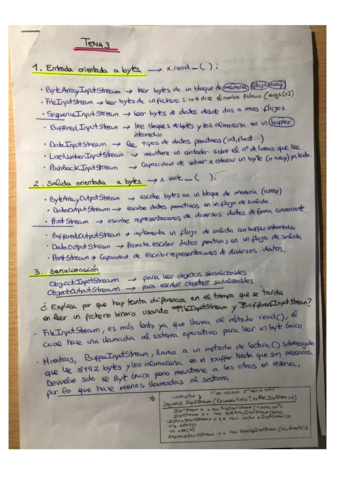 TEMA 3
1. Entrada orientada a bytes → x.read_();
• ByteArrayInputStream → leer bytes de un bloque de memoria (array)
• FileInputStream → leer bytes de un fichero
• SequenceInputStream → leer datos desde dos o más flujos
• BufferedInputStream → lee bloques de bytes y los almacena en un buffer
intermedio
• DataInputStream → lee tipos de datos primitivos (int, float...)
• LineNumberInputStream → mantiene un contador sobre el nº de líneas que lee
• PushbackInputStream → Capacidad de volver a colocar un byte (o array) en
2. Salida orientada a bytes → x.write_();
• ByteArrayOutputStream → escribe bytes en un bloque de memoria (array)
• DataOutputStream → escribe datos primitivos en un flujo de salida
• PrintStream → escribe representaciones de diversos datos de forma conveniente
• BufferedOutputStream → implementa un flujo de salida con buffer intermedio
• DataOutputStream → Permite escribir datos primitivos en un flujo de salida
• PrintStream → Capacidad de escribir representaciones de diversos datos.
3. Serialización
ObjectInputStream → para leer objetos serializables
ObjectOutputStream → para escribir objetos serializables
¿Explica por que hay tanta diferencia, en el tiempo que se tarda
en leer un fichero binario usando FileInputStream y BufferedInputStream?
• FileInputStream, es más lento ya que llama al método read(), el
cual hace una llamada al sistema operativo para leer un byte único
• Mientras, BufferInputStream, llama a un método de lectura() sobrecargado
que lee 8192 bytes y los almacena en un buffer hasta que son necesarios.
Devuelve sólo el byte único pero mantiene a los otros en reserva,
por lo que hace menos llamadas al sistema